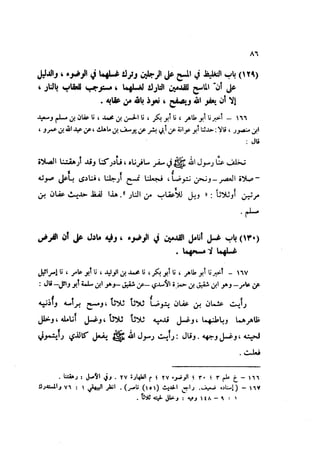 ٨٦
(١٢٩) باب التغليظ في المسح على الرجلين وترك غسلهما في الوضوء ، والدليل
على أن الماسح للقدمين التارك لغسلهما ، مستوجب للعقاب بالنار ،
إلا أن يعفو الله ويصفح ، نعوذ بالله من عقابه .
١٦٦ – أخبرنا أبو طاهر ، نا أبو بكر ، نا الحسن بن محمد ، نا عفان بن مسلم وسعيد
ابن منصور ، قالا : حدثنا أبو عوانة عن أبي بشر عن يوسف بن ماهك ، عن عبد الله بن عمرو ،
قال :
تخلف عنا رسول الله ﷺ في سفر سافرناه ، فأدركنا وقد أرهقتنا الصلاة
– صلاة العصر – ونحن نتوضأ ، فجعلنا نمسح أرجلنا ، فنادى بأعلى صوته
مرتين أو ثلاثاً : « ويل للأعقاب من النار » . هذا لفظ حديث عفان بن
مسلم .
(١٣٠) باب غسل أنامل القدمين في الوضوء ، وفيه مادل على أن الفرض
غسلهما لا مسحهما .
١٦٧ – أخبرنا أبو طاهر ، نا أبو بكر ، نا أبو عامر ، نا إسرائيل
عن عامر – وهو ابن شقيق بن حمزة الأسدي – عن شقيق – وهو ابن سلمة أبو وائل – قال :
رأيت عثمان بن عفان يتوضأ ثلاثاً ثلاثاً ، ومسح برأسه وأذنيه
ظاهرهما وباطنهما ، وغسل قدميه ثلاثاً ثلاثاً ، وغسل أنامله ، وخلل
لحيته ، وغسل وجهه . وقال : رأيت رسول الله ﷺ يفعل كالذي رأيتموني
فعلت .
١٦٦ – خ علم ٣ ؛ ٣٠ ؛ الوضوء ٢٧ ؛ م الطهارة ٢٧ . وفي الأصل : رهقتنا .
١٦٧ – (إسناده ضعيف. راجع الحديث (١٥١) ناصر) . انظر البيهقي ١ : ٧٦ والمستدرك
١ : ١٤٨ – ٩ وفيه : وخلل لحيته ثلاثاً .